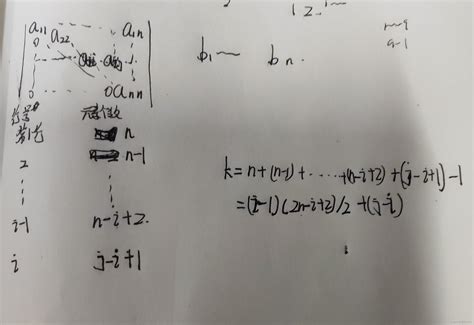 a11 a1n
0 a22
0 0 ann
b1 bn
行号 元素个数
第1行 n
2 n-1
i-1 n-i+2
i j-i+1
k=n+(n-1)+……+(n-i+2)+(j-i+1)-1
=(i-1)(2n-i+2)/2+(j-i)